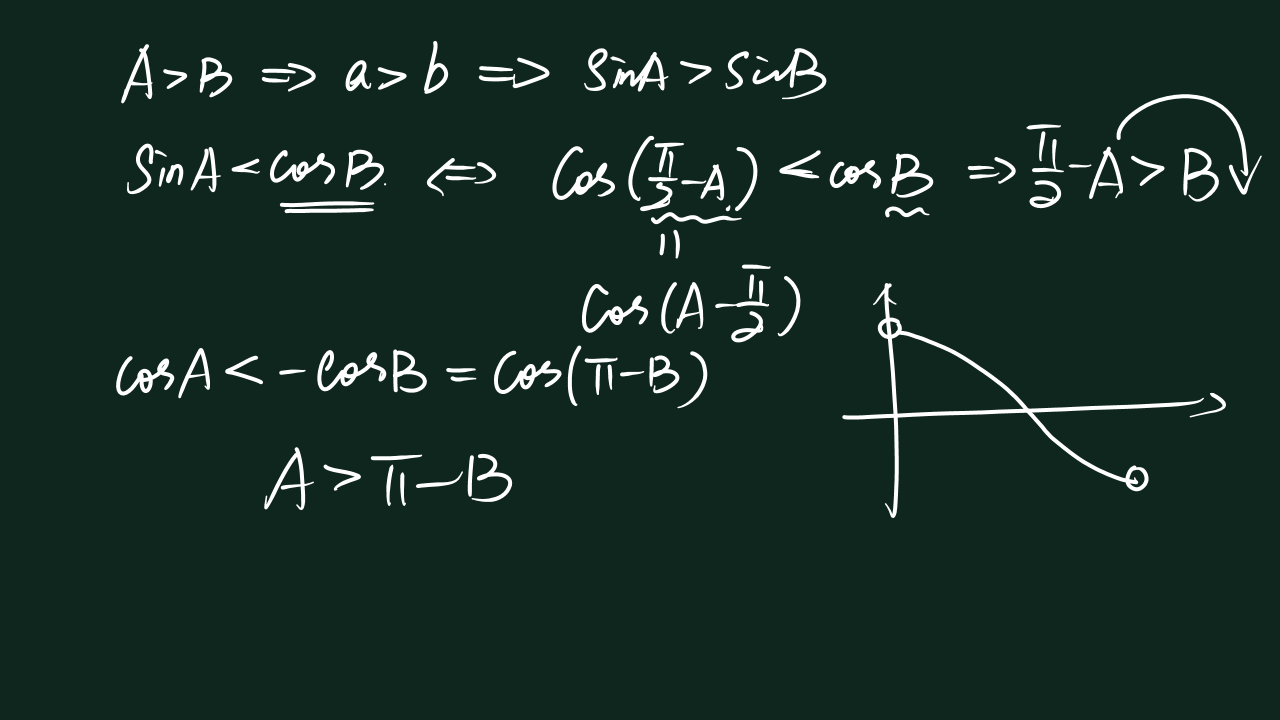 A>B ⇒ a>b ⇒ SinA > SinB
SinA < cosB. ⇔ Cos(π/2-A.) < cosB ⇒ π/2-A > B
||
Cos(A-π/2)
cosA < -cosB = Cos(π-B)
A > π-B